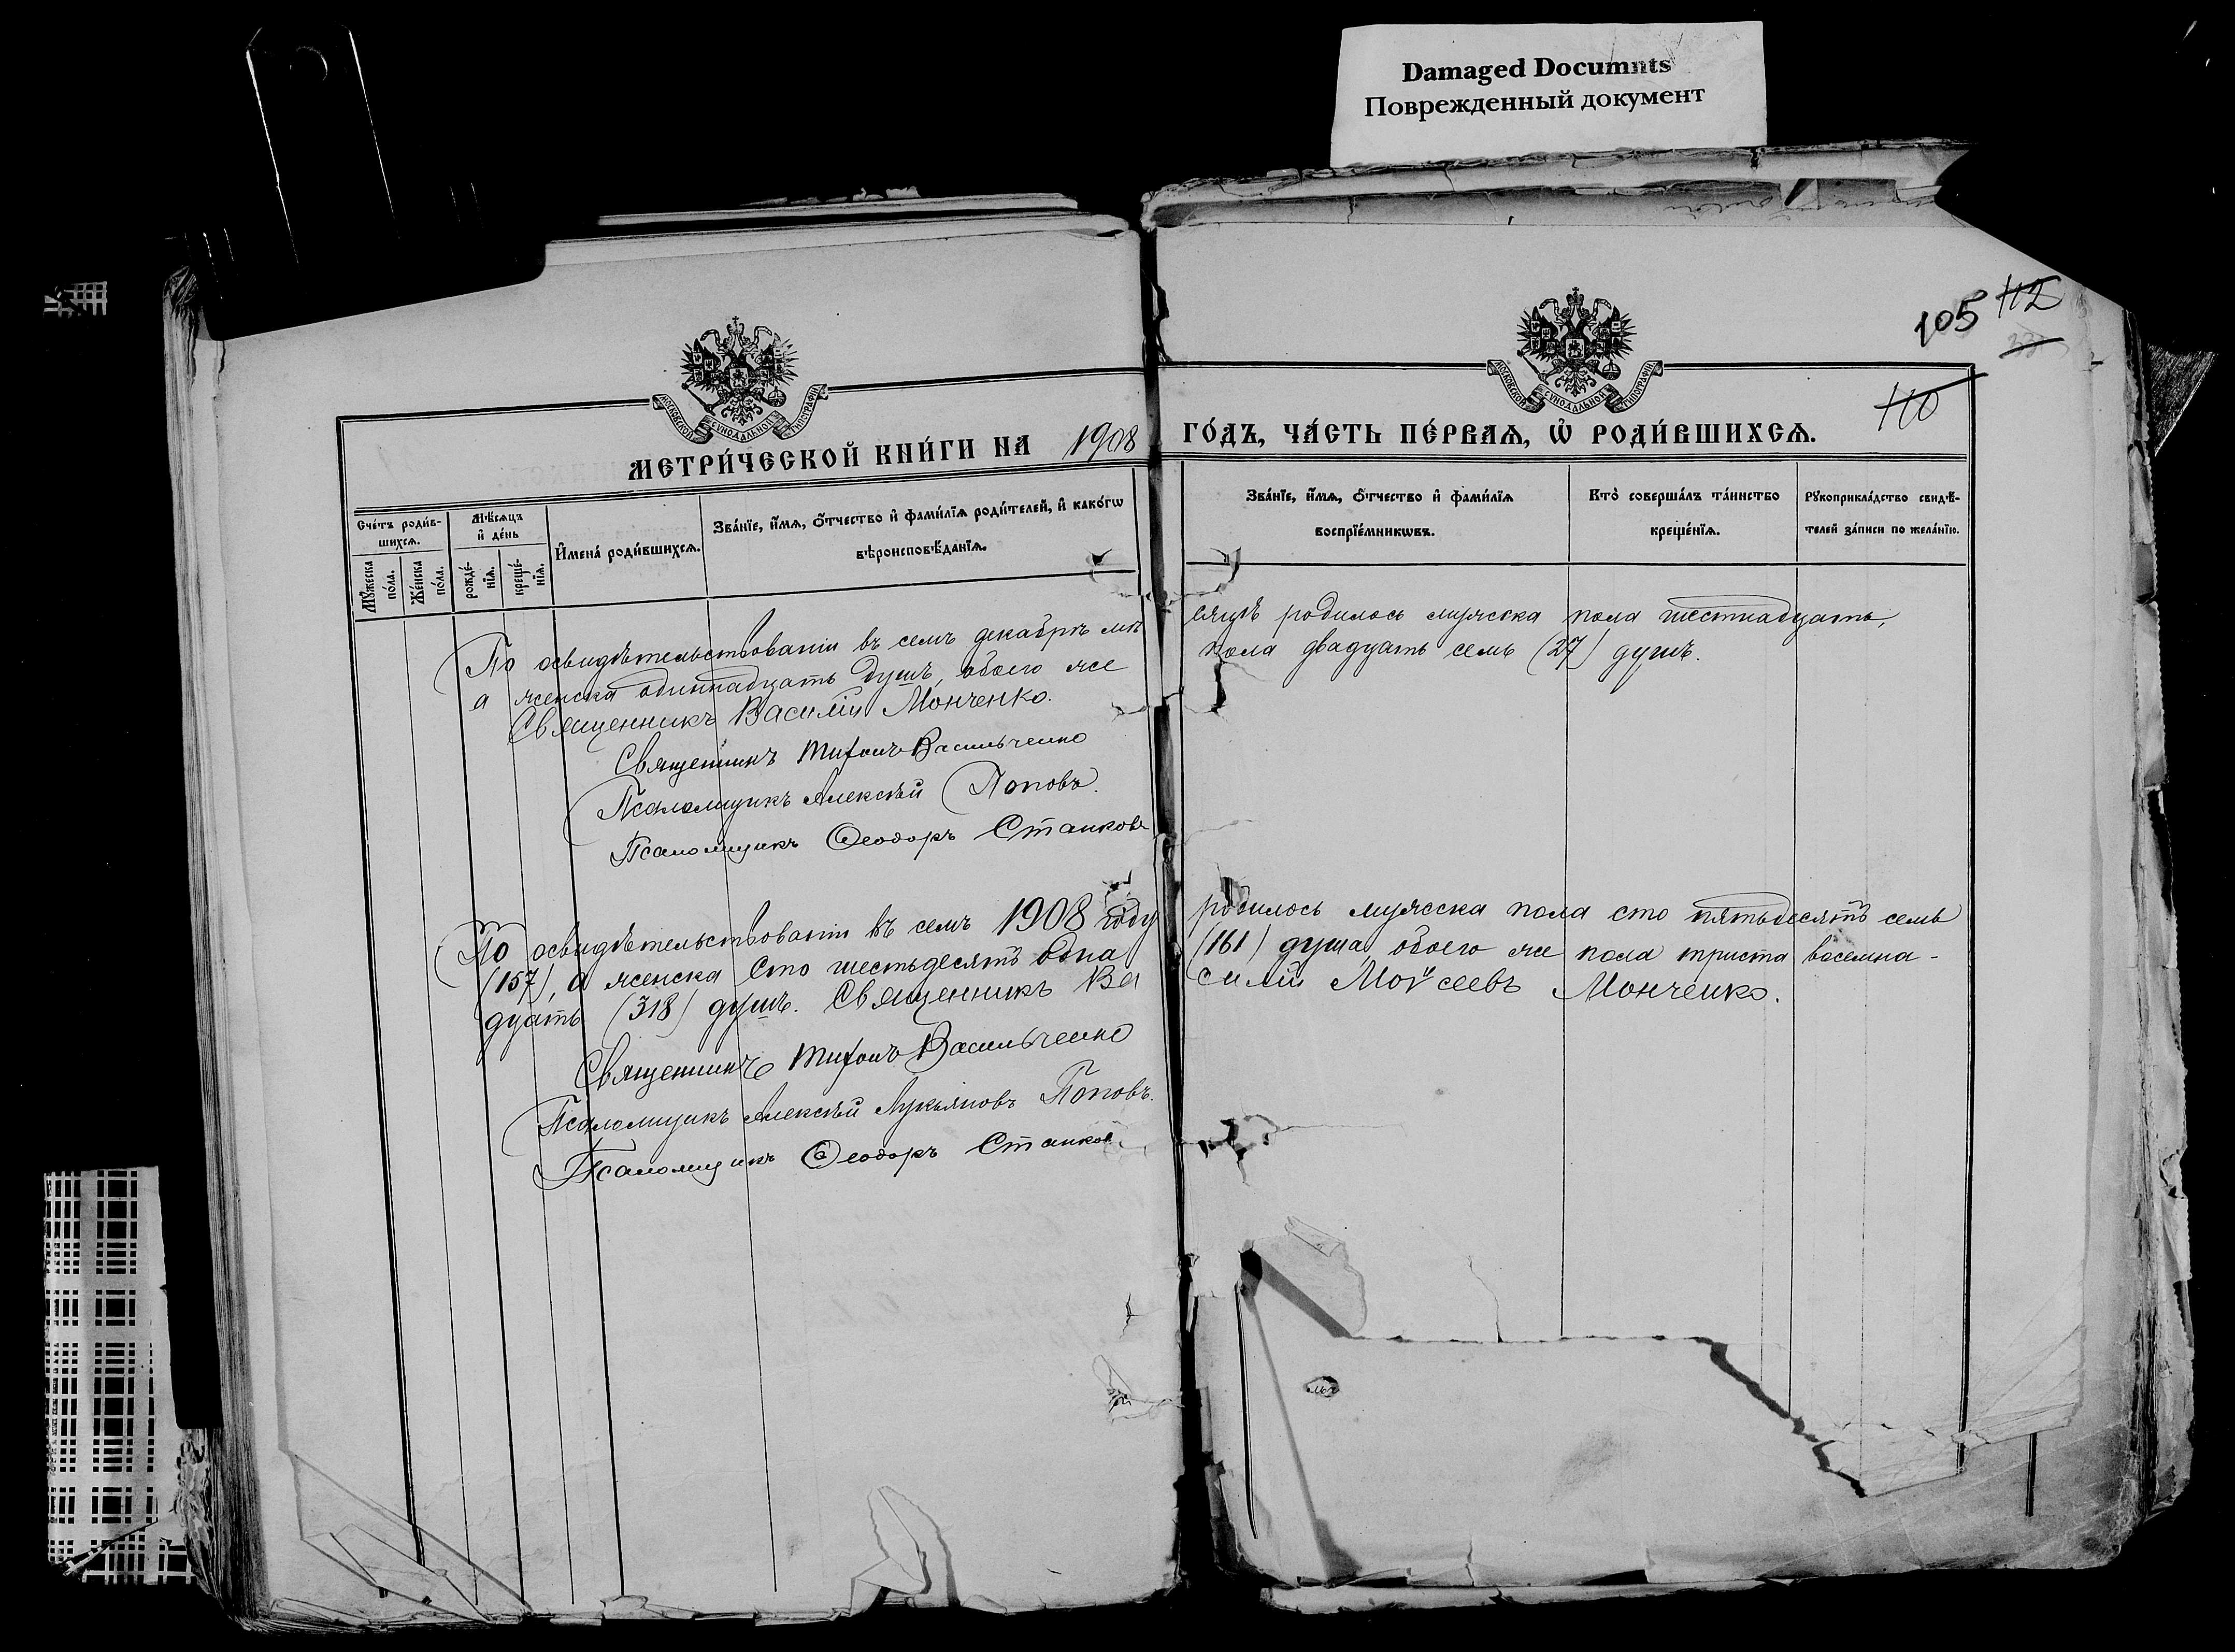 Damaged Documnts
Поврежденный документ
105 112
110
МОСКОВСКОЙ СѴНОДАЛЬНОЙ ТИПОГРАФІИ
МОСКОВСКОЙ СѴНОДАЛЬНОЙ ТИПОГРАФІИ
МЕТРИ́ЧЕСКОЙ КНИ́ГИ НА 1908 ГО́ДЪ, ЧА́СТЬ ПЕ́РВАЯ, Ѡ҆ РОДИ́ВШИХСЯ.
Сче́тъ роди́в-
шихся.
Мꙋ́жеска
по́ла.
Же́нска
по́ла.
Мѣ́сяцъ
и҆ де́нь
рожде́-
нїя.
креще́-
нїя.
И҆мена̀ роди́вшихся.
Зва́нїе, и҆́мя, ѻ҆́тчество и҆ фами́лїя роди́телей, и҆ како́гѡ
вѣроисповѣ́данїя.
Зва́нїе, и҆́мя, ѻ҆́тчество и҆ фами́лїя
воспрїе́мникѡвъ.
Кто̀ соверша́лъ та́инство
креще́нїя.
Рꙋкоприкла́дство свидѣ́-
телей за́писи по жела́нїю.
По освидѣтельствованіи въ семъ декабрѣ мѣ сяцѣ родилось мужеска пола шестнадцать,
а женска одиннадцать душъ, обоего же пола двадцать семь (27) душъ.
Священникъ Василій Монченко.
Священникъ Тихонъ Васильченко
Псаломщикъ Алексѣй Поповъ.
Псаломщикъ Ѳеодоръ Станковъ
По освидѣтельствованіи въ семъ 1908 году родилось мужеска пола сто пятьдесятъ семь
(157), а женска сто шестьдесятъ одна (161) душа, обоего же пола триста восемна-
дцать (318) душъ. Священникъ Ва силій Моѵсеевъ Монченко.
Священникъ Тихонъ Васильченко
Псаломщикъ Алексѣй Лукьяновъ Поповъ.
Псаломщикъ Ѳеодоръ Станков